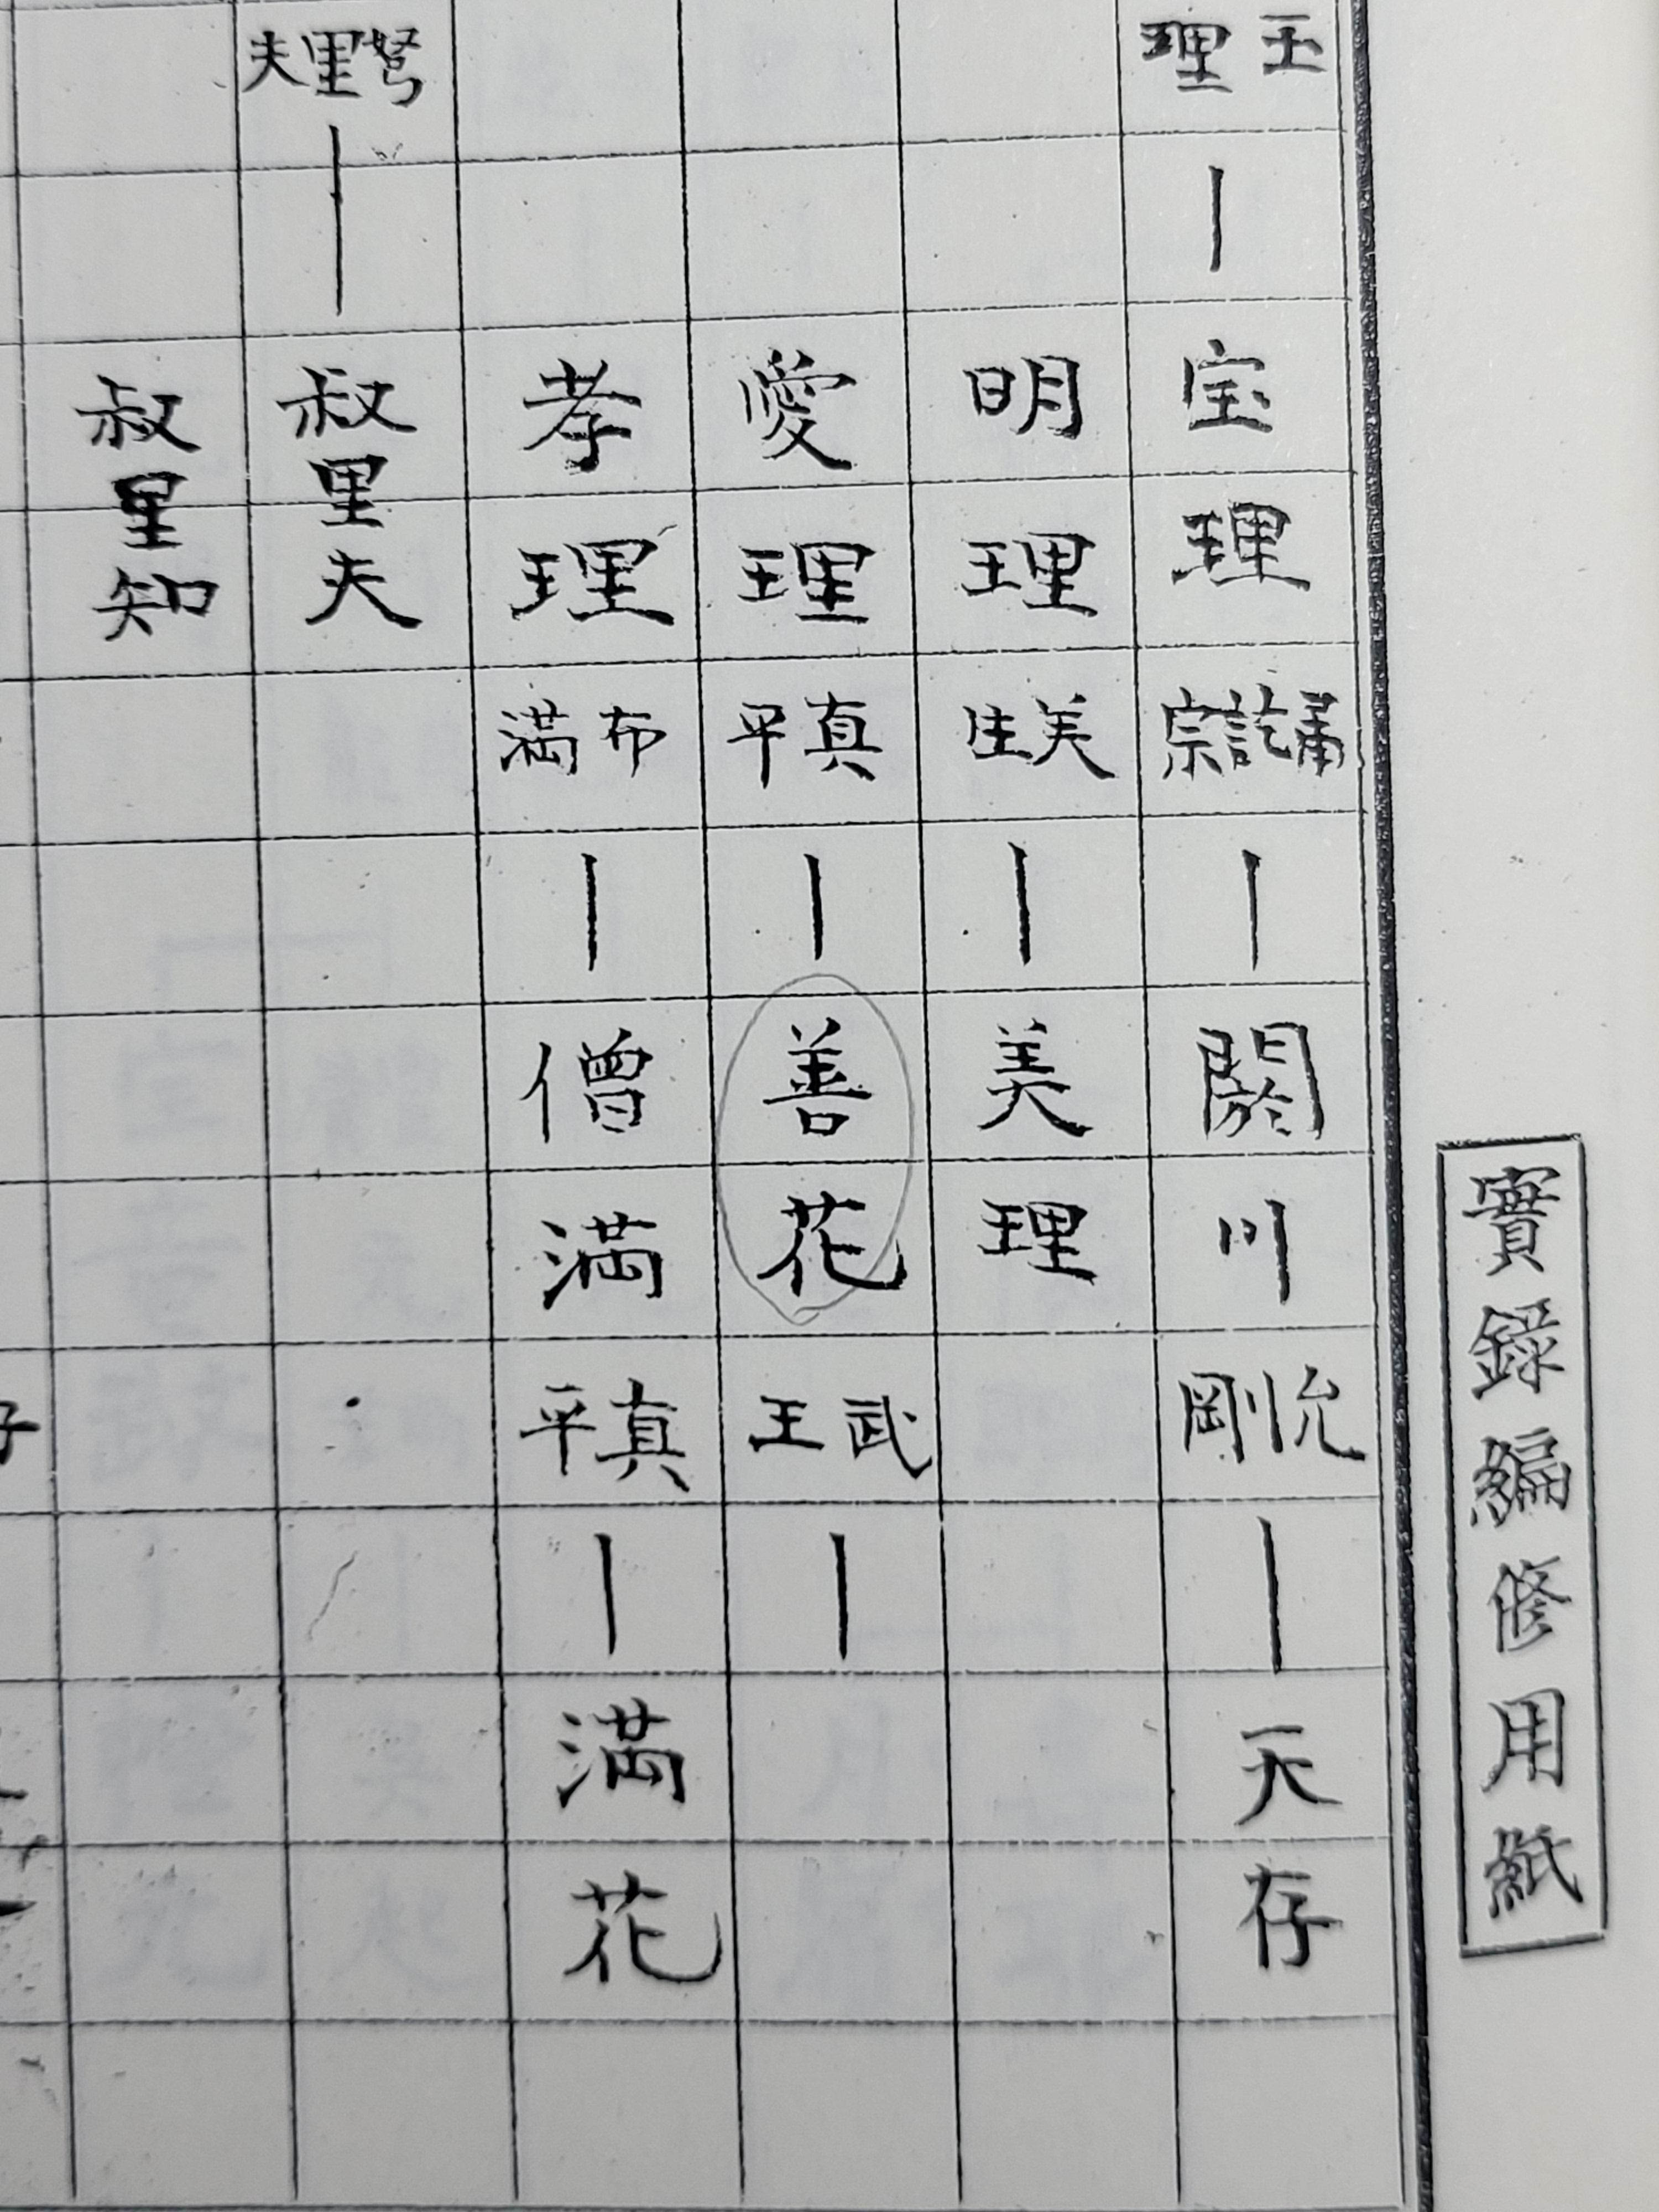 實錄編修用紙
玉理｜宝理誦訖宗｜閼川允剛｜天存
明理美生｜美理
愛理真平｜善花武王｜
孝理布満｜僧満真平｜満花
弩里夫｜叔里夫
叔里知